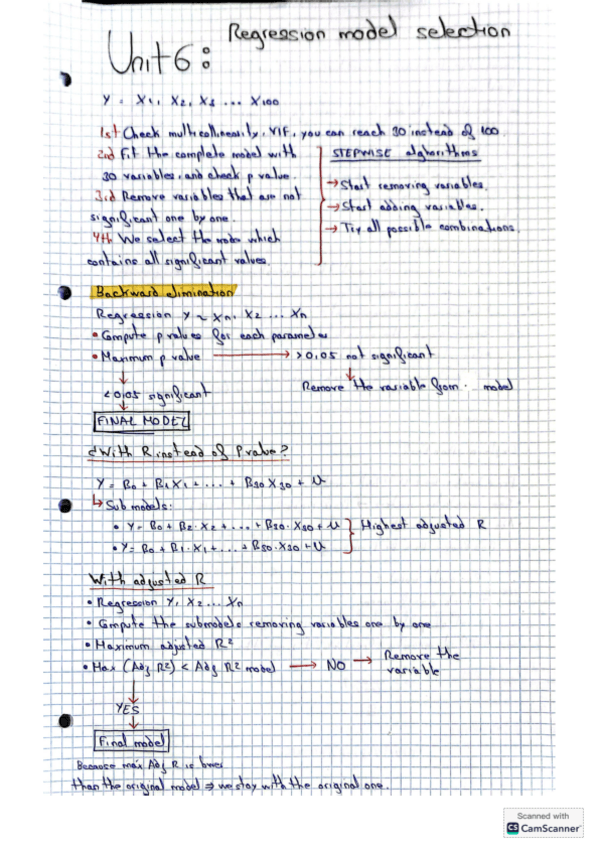 Unit 6: Regression model selection
Y = X1, X2, X3 ... X100
1st Check multicollinearity, VIF, you can reach 30 instead of 100
2nd Fit the complete model with
30 variables, and check p value.
3rd Remove variables that are not
significant one by one.
4th We select the model which
contains all significant values.
STEPWISE algorithms
→ Start removing variables.
→ Start adding variables.
→ Try all possible combinations.
Backward elimination
Regression Y ~ Xn, X2 ... Xn
• Compute p values for each parameter
• Maximum p value → > 0,05 not significant
↓
Remove the variable from model
↓
< 0,05 significant
↓
FINAL MODEL
¿With R instead of P value?
Y = B0 + B1X1 + ... + B30X30 + U
↳ Sub models:
• Y = B0 + B2·X2 + ... + B30·X30 + U
• Y = B0 + B1·X1 + ... + B30·X30 + U
Highest adjusted R
With adjusted R
• Regression Y, X2 ... Xn
• Compute the submodels removing variables one by one
• Maximum adjusted R²
• Max (Adj R²) < Adj R² model → NO → Remove the
variable
↓
YES
↓
Final model
Because max Adj R is lower
than the original model ⇒ we stay with the original one.
Scanned with
CS CamScanner